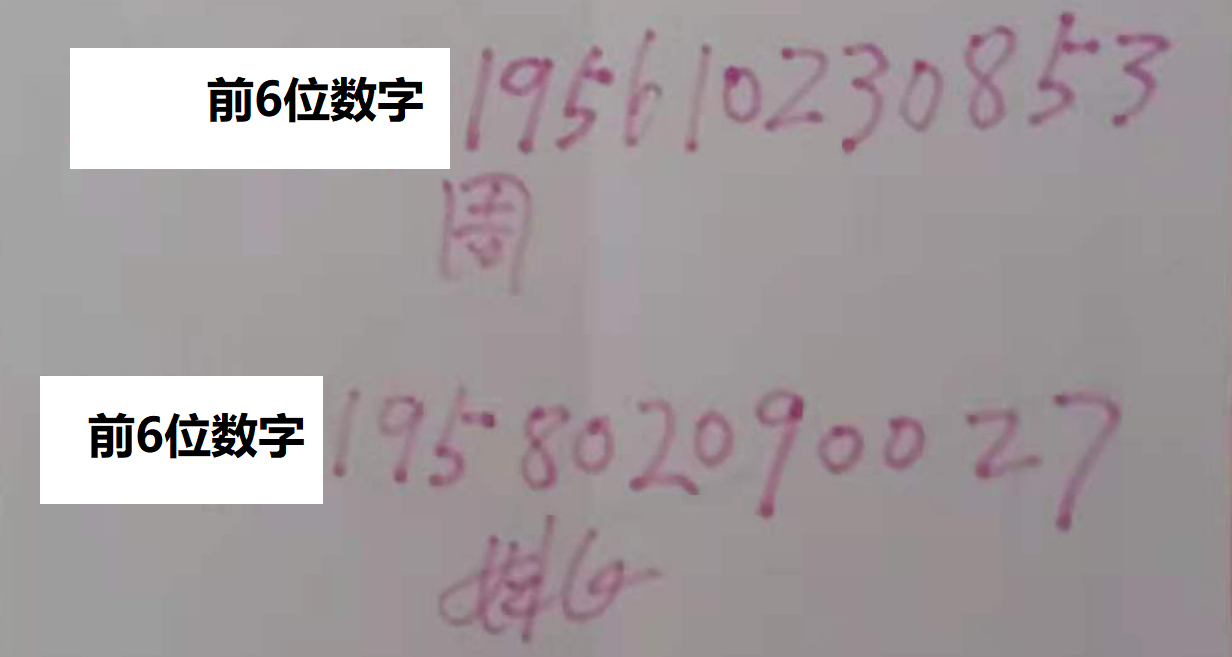 前6位数字 195610230853
周
前6位数字 195802090027